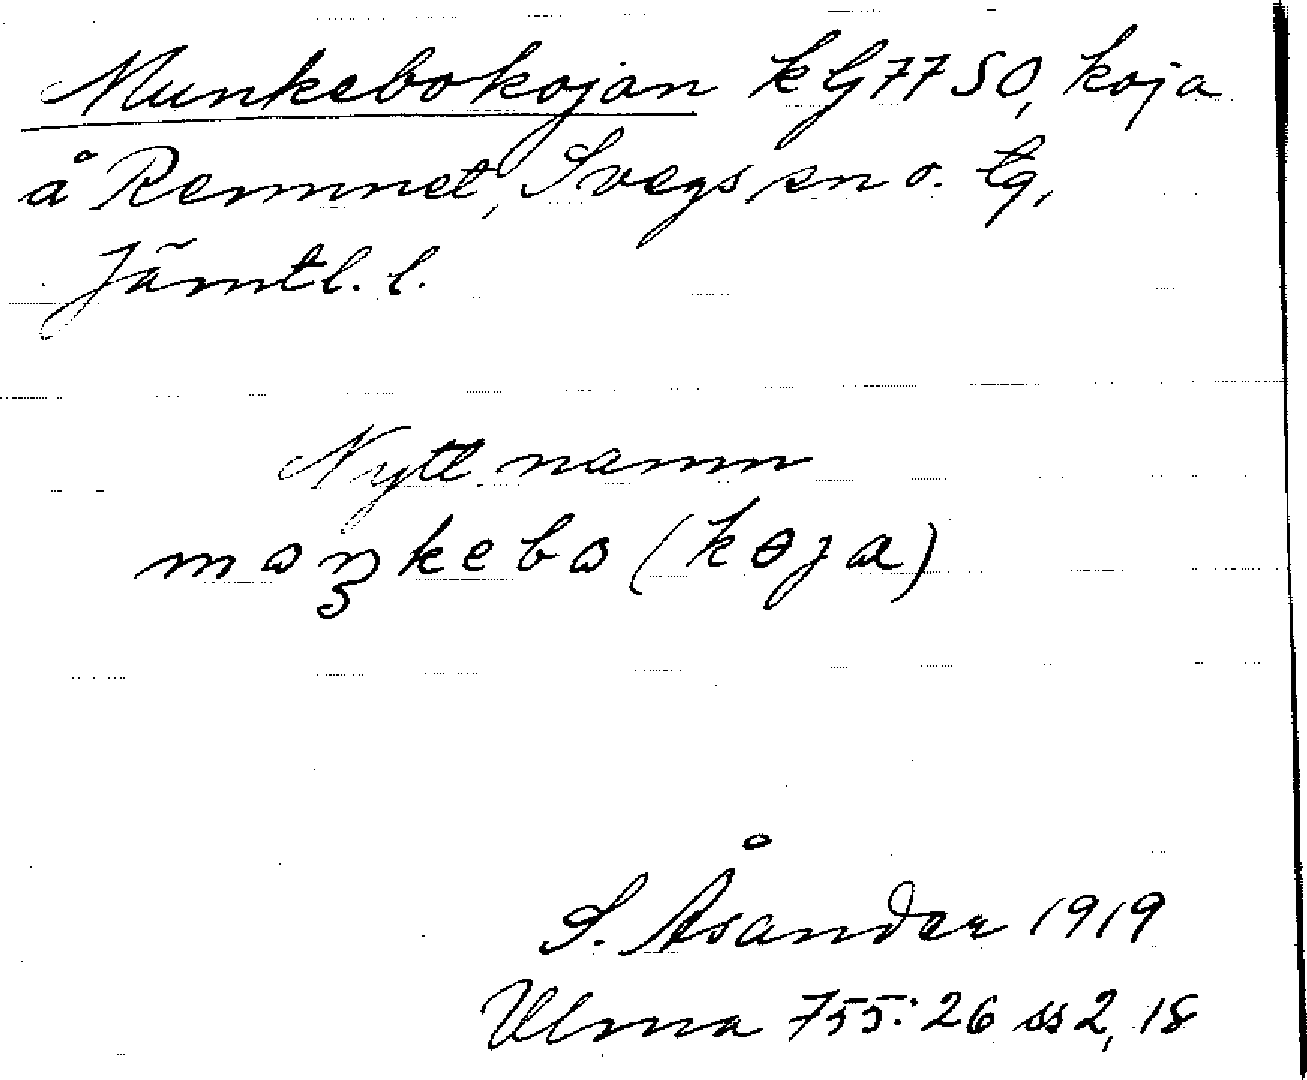 Munkebokojan k G77 SO, koja
å Remmet, Svegs sn o. tg,
Jämtl. l.
Nytt namn
moŋkebo (koja)
S. Åsander 1919
Ulma 755:26 ss 2, 18